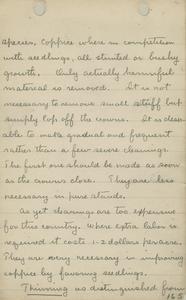 species, coppice where in competition
with seedlings, all stunted or bushy
growth. Only actually harmful
material is removed. It is not
necessary to remove small stuff but
simply lop off the crowns. It is desir-
able to make gradual and frequent
rather than a few severe cleanings.
The first one should be made as soon
as the crowns close. They are less
necessary in pure stands.
As yet cleanings are too expensive
for this country. Where extra labor is
required it costs 1-2 dollars per acre.
They are very necessary in improving
coppice by favoring seedlings.
Thinning as distinguished from